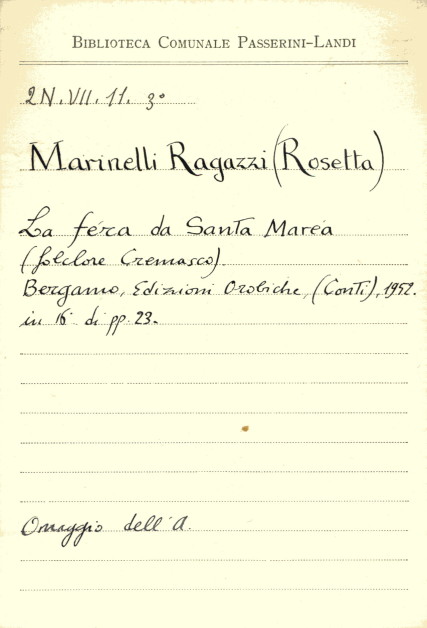 BIBLIOTECA COMUNALE PASSERINI-LANDI
2N.VII.11.3°
Marinelli Ragazzi (Rosetta)
La féra da Santa Marèa
(folclore Cremasco).
Bergamo, Edizioni Orobiche, (Conti), 1952.
in 16° di pp. 23.
Omaggio dell'A.